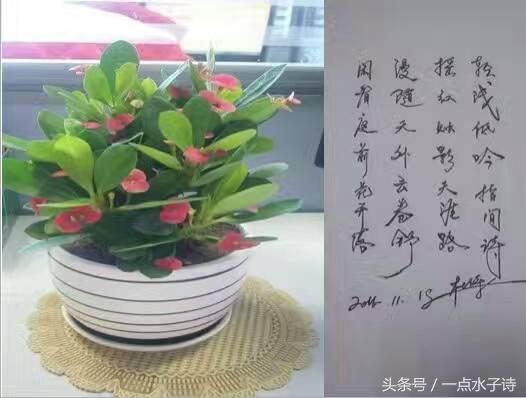 浅低吟指间诗
摇红烛影天涯路
漫随天外云卷舒
闲看庭前花开落
2016. 11.
头条号 / 一点水子诗